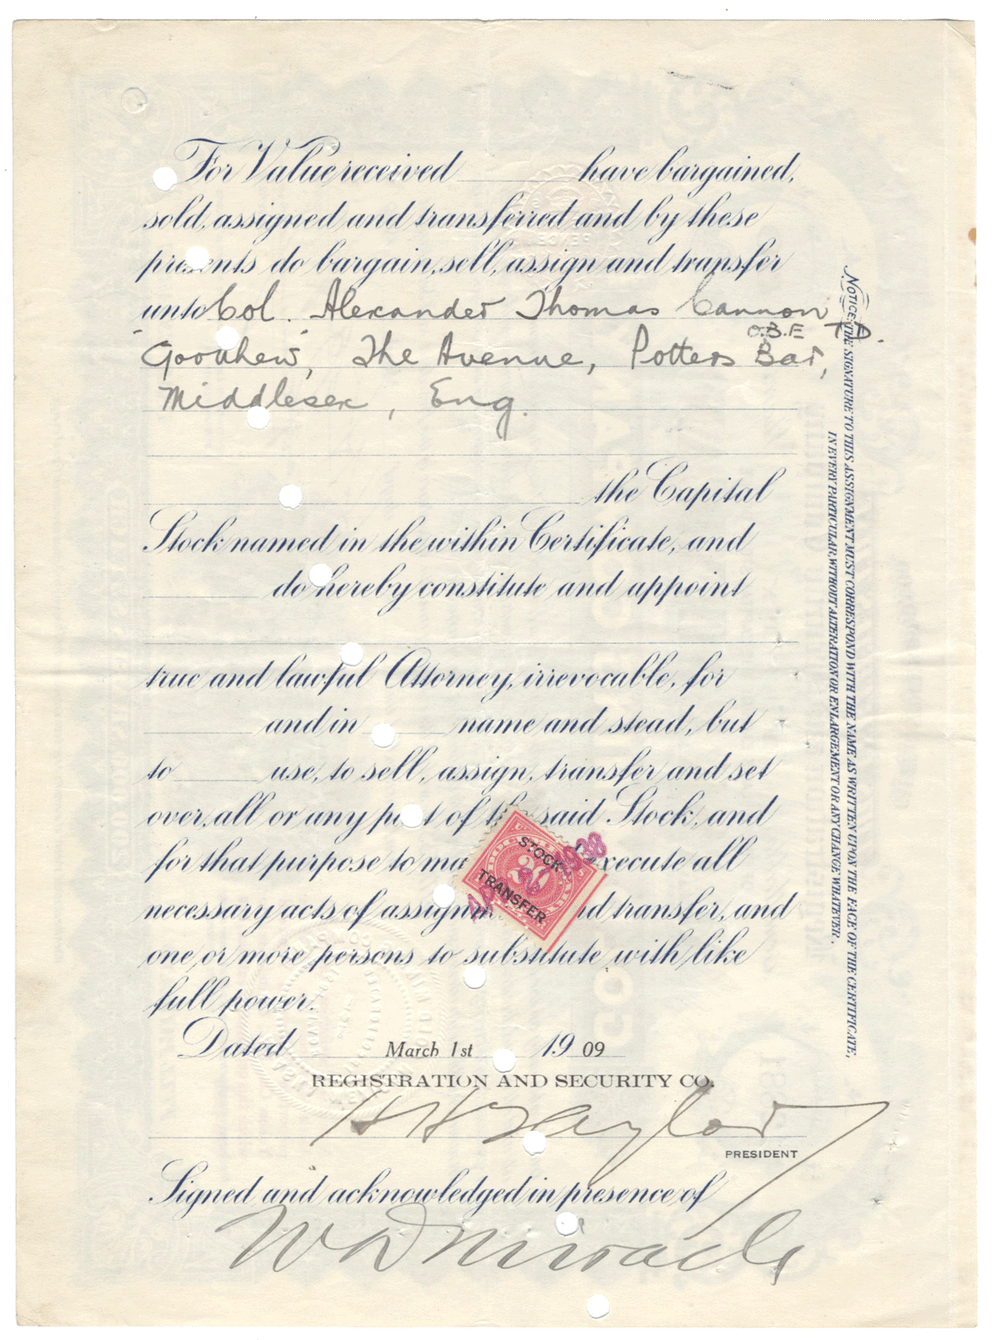 For Value received have bargained,
sold, assigned and transferred and by these
presents do bargain, sell, assign and transfer
unto Col. Alexander Thomas Cannon
O.B.E T.D.
"Goodhew", The Avenue, Potters Bar,
Middlesex, Eng.
the Capital
Stock named in the within Certificate, and
do hereby constitute and appoint
true and lawful Attorney, irrevocable, for
and in name and stead, but
to use, to sell, assign, transfer and set
over, all or any part of the said Stock, and
for that purpose to ma xecute all
necessary acts of assignm nd transfer, and
one or more persons to substitute with like
full power.
Dated March 1st 1909
REGISTRATION AND SECURITY CO.
H H Taylor
PRESIDENT
Signed and acknowledged in presence of
W D Miracle
STOCK
TRANSFER
NOTICE, THE SIGNATURE TO THIS ASSIGNMENT MUST CORRESPOND WITH THE NAME AS WRITTEN UPON THE FACE OF THE CERTIFICATE,
IN EVERY PARTICULAR, WITHOUT ALTERATION OR ENLARGEMENT OR ANY CHANGE WHATEVER.